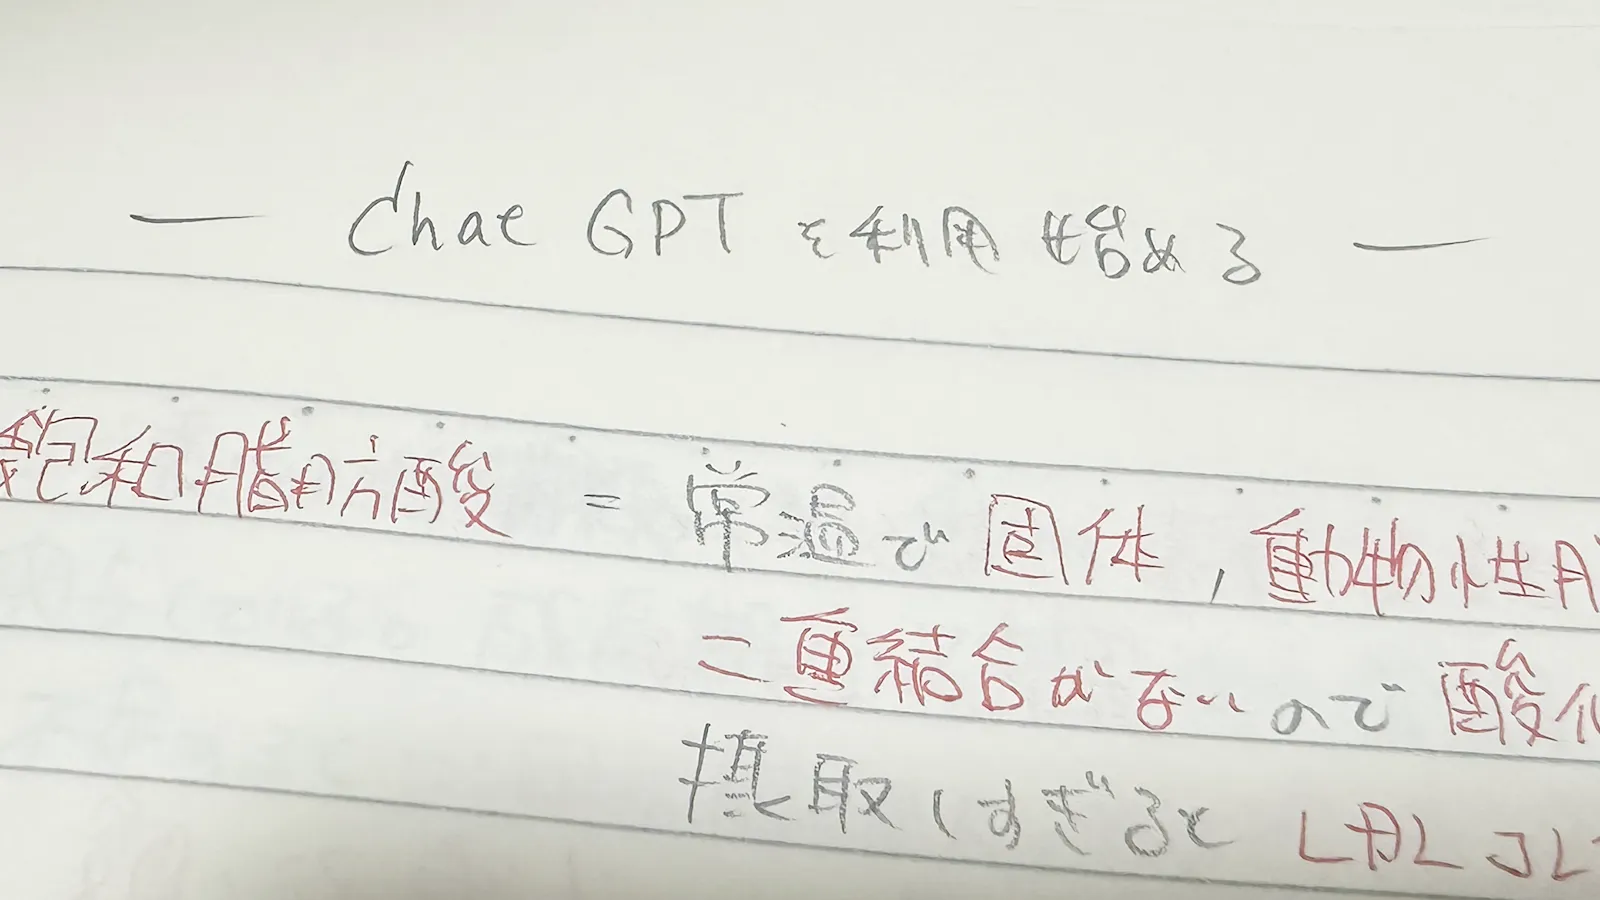 — Chat GPT を利用始める —
飽和脂肪酸 = 常温で固体, 動物性
二重結合がないので酸化
摂取しすぎると LDL コレ